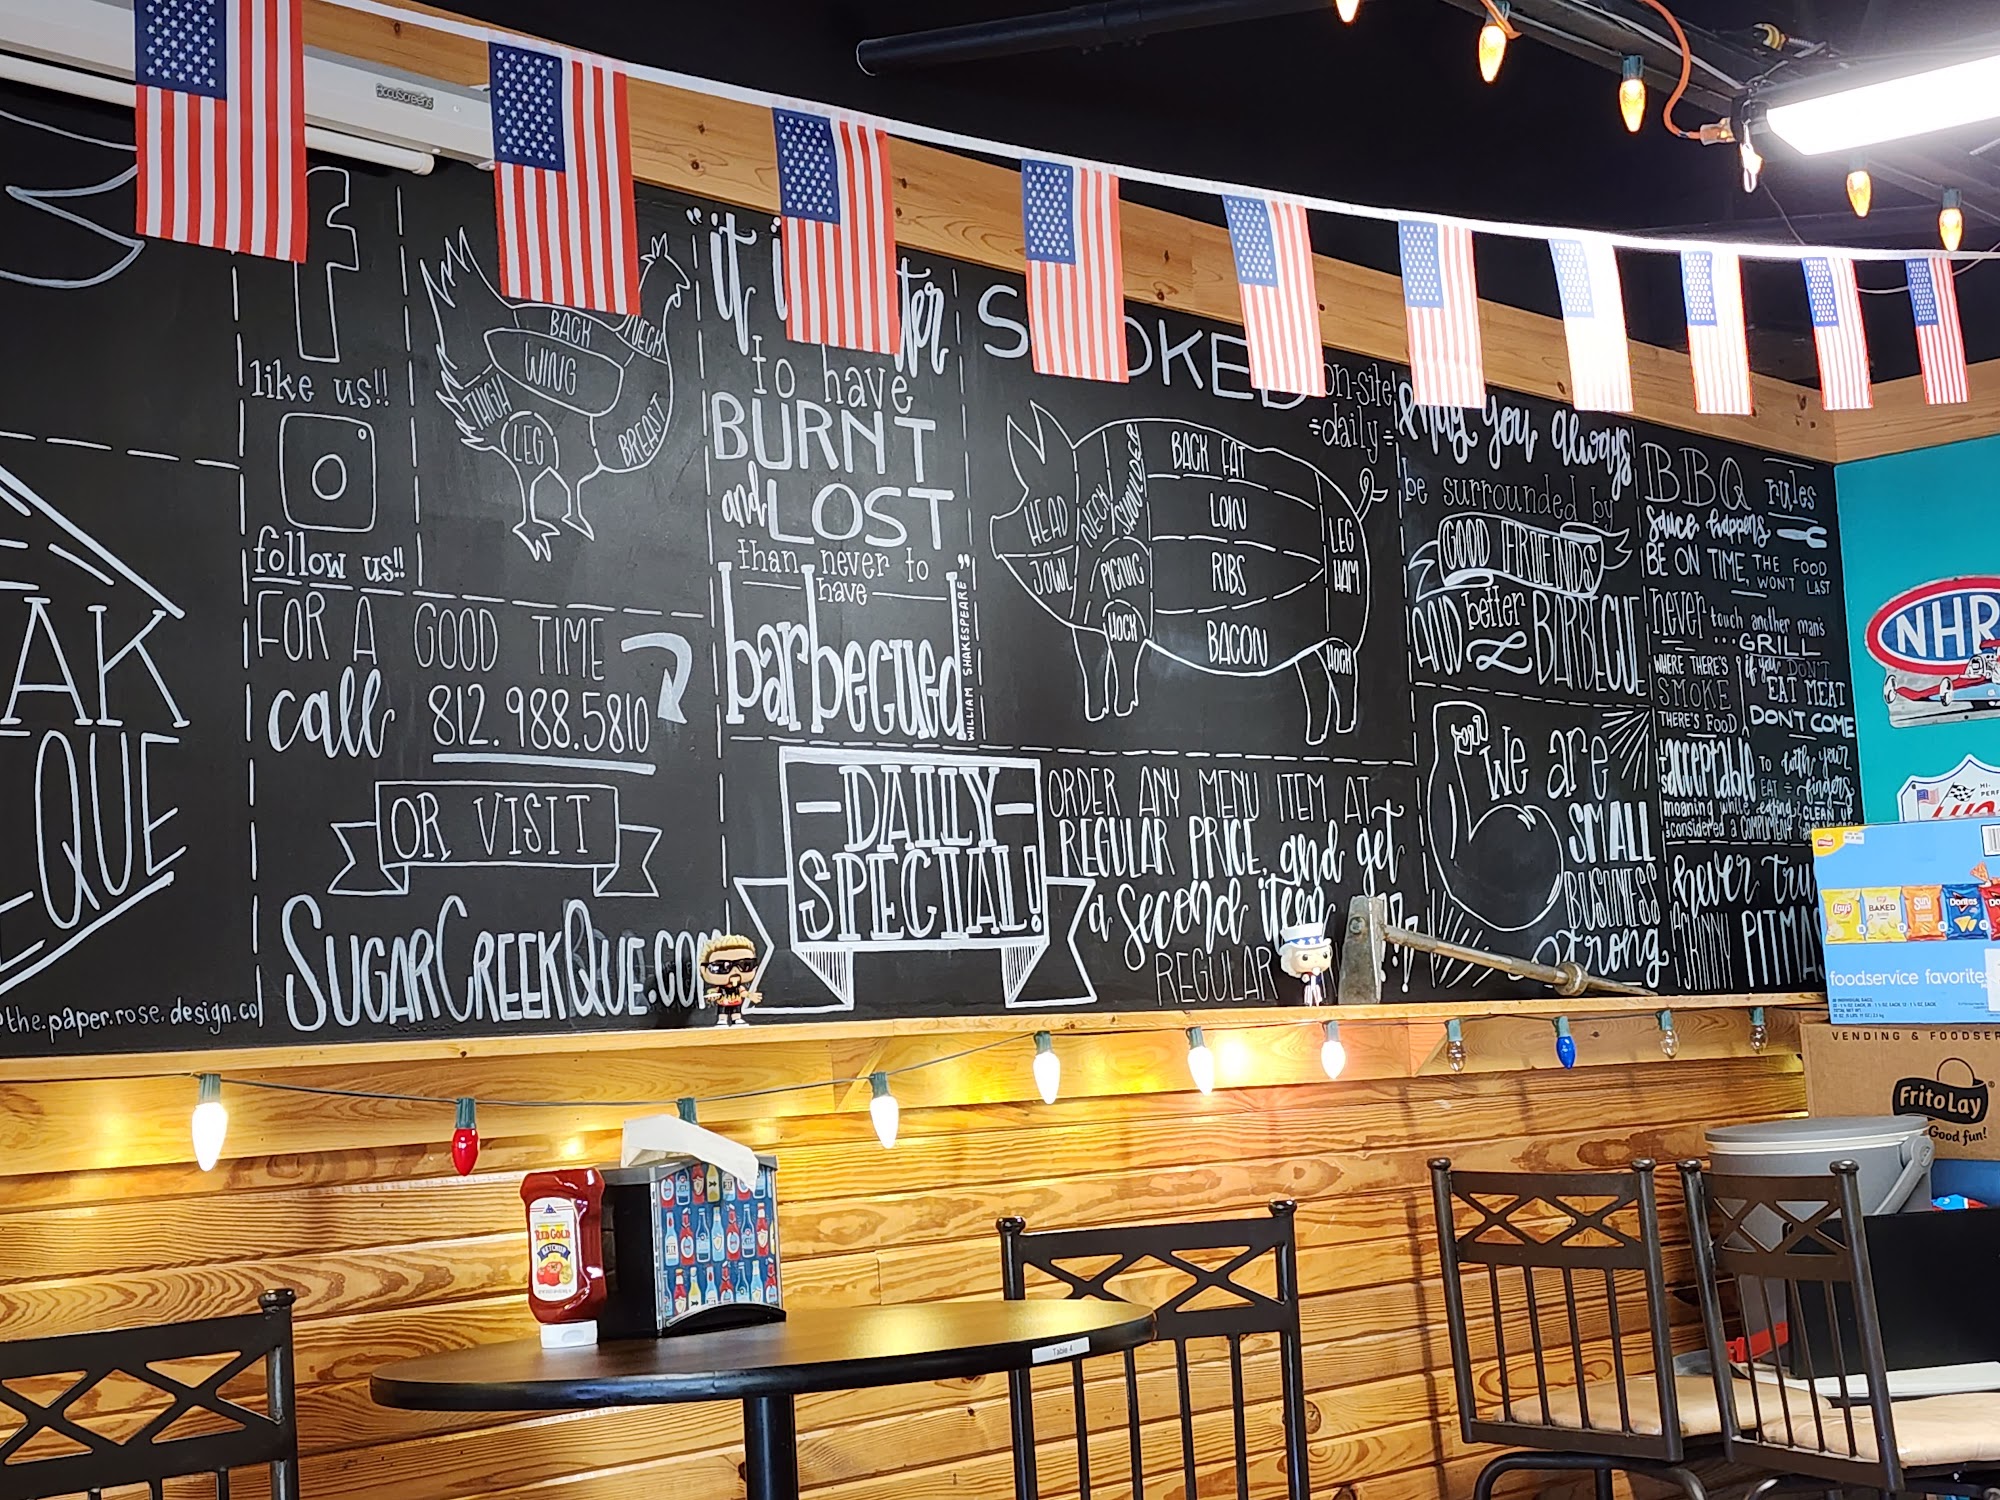 accuScreens
like us!!
follow us!!
BACK
NECK
WING
THIGH
LEG
BREAST
FOR A GOOD TIME
call 812.988.5810
OR VISIT
SUGARCREEKQUE.CO
the.paper.rose.design.co
AK
QUE
"it
to have
BURNT
and LOST
than never to
have
barbecued"
WILLIAM SHAKESPEARE
on-site
daily
BACK FAT
HEAD
NECK
SHOULDER
LOIN
LEG
HAM
JOWL
PICNIC
RIBS
HOCK
BACON
HOCK
-DAILY-
SPECIAL!
ORDER ANY MENU ITEM AT
REGULAR PRICE, and get
a second item
REGULAR
may you always
be surrounded by
GOOD FRIENDS
AND better
BARBECUE
We are
SMALL
BUSINESS
strong
BBQ rules
sauce happens
BE ON TIME, THE FOOD
WON'T LAST
never touch another man's
... GRILL
WHERE THERE'S
SMOKE
THERE'S FOOD
if you DON'T
EAT MEAT
DON'T COME
acceptable TO
EAT with your
fingers
moaning while eating is
considered a COMPLIMENT
CLEAN UP
never tru
A SKINNY PITMAS
NHR
Lay's
BAKED
Sun
Doritos
foodservice favorites
VENDING & FOODSER
FritoLay
Good fun!
RED GOLD
KETCHUP
Table 4